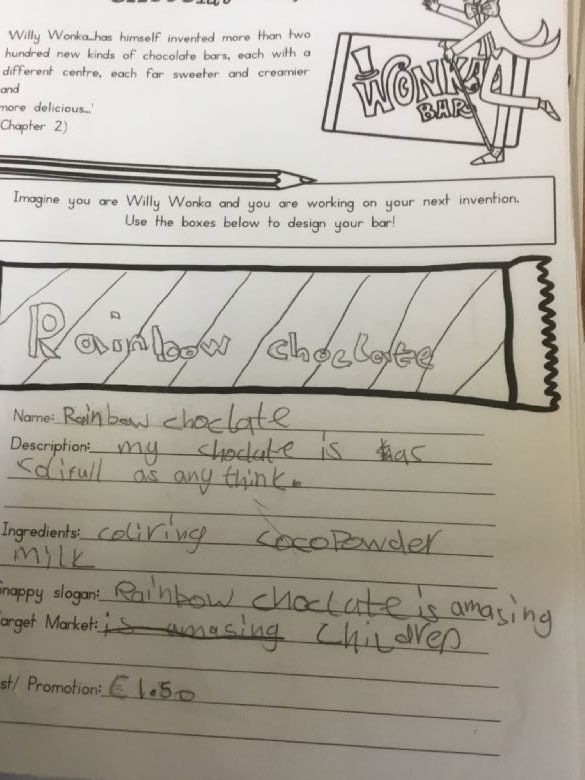 Willy Wonka...has himself invented more than two
hundred new kinds of chocolate bars, each with a
different centre, each far sweeter and creamier
and
more delicious...'
Chapter 2)
WONKA
BAR
Imagine you are Willy Wonka and you are working on your next invention.
Use the boxes below to design your bar!
Rainbow choclate
Name: Rainbow choclate
Description: my choclate is as
colifull as any think.
Ingredients: coliring cocoPowder
milk
nappy slogan: Rainbow choclate is amasing
arget Market: is amasing Children
st/ Promotion: €1.50